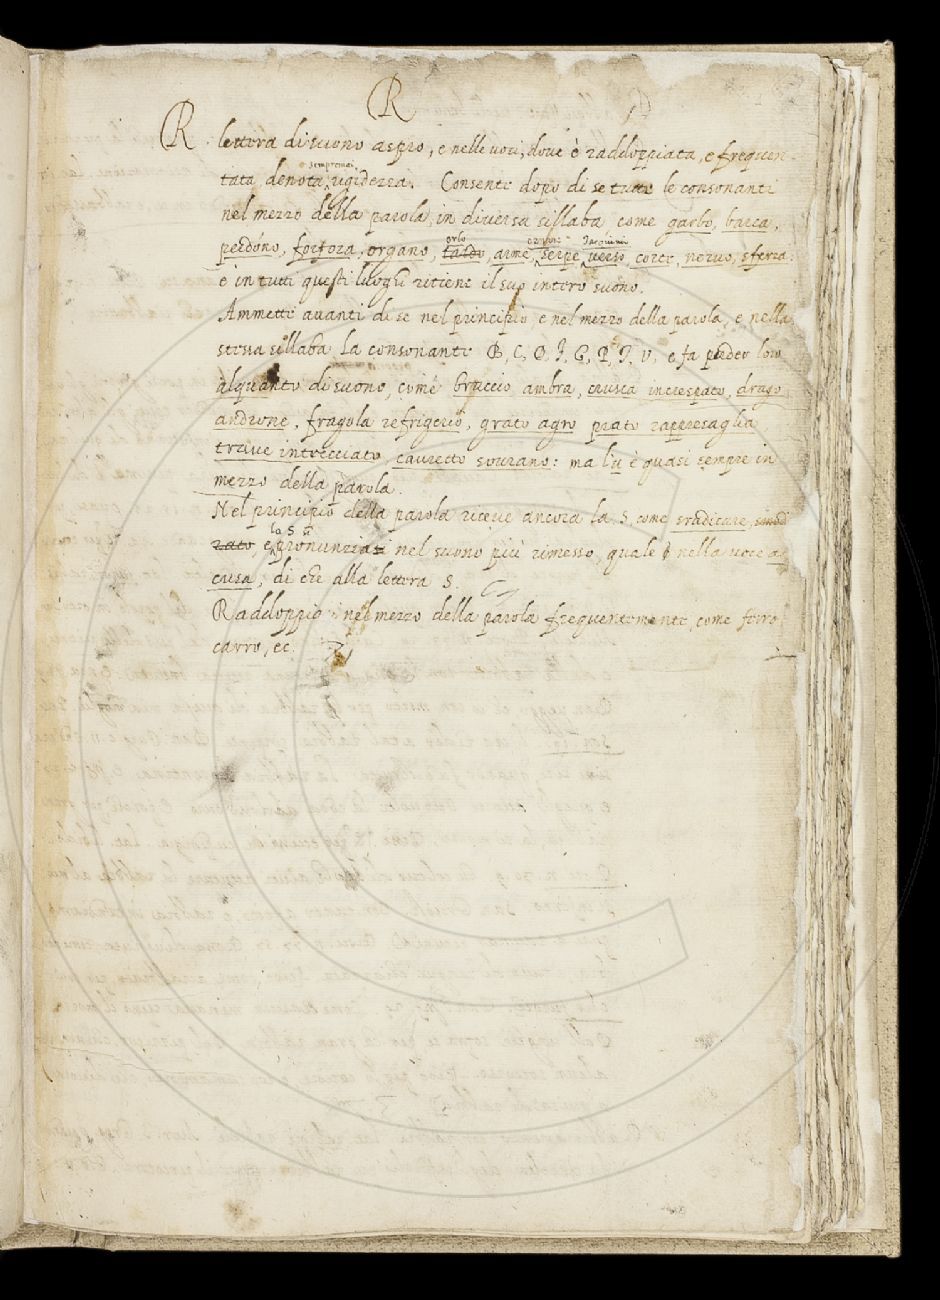 R
R. lettera di suono aspro, e nelle voci, dove è raddoppiata, e frequen-
sempremai
tata denota rigidezza. Consente dopo di se tutte le consonanti
nel mezzo della parola, in diversa sillaba come garbo, barca,
orlo
perdóno, forfora, organo, tardo, arme, serpe, verso, corte, nervo, sferza:
e in tutti questi luoghi ritiene il suo intero suono.
Ammette avanti di se nel principio, e nel mezzo della parola, e nella
stessa sillaba la consonante B, C, D, F, G, P, T, V, e fa perder loro
alquanto di suono, come braccio ambra, crusca increspato, drago
androne, fragola refrigerio, grato agro prato rappresaglia
trave intrecciato cavretto sovrano: ma l'u è quasi sempre in
mezzo della parola.
Nel principio della parola riceve ancora la S, come sradicare,
la S
rato, e pronunziasi nel suono più rimesso, quale è nella voce a
cusa, di che alla lettera S.
Raddoppia nel mezzo della parola frequentemente, come ferro,
carro, ec.